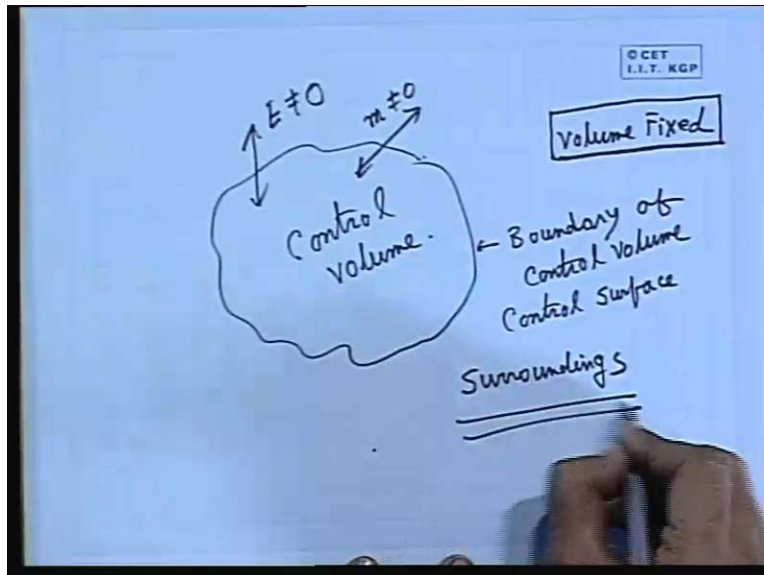 © CET
I.I.T. KGP
E ≠ 0
m ≠ 0
Volume Fixed
Control
Volume.
← Boundary of
Control Volume
Control Surface
Surroundings